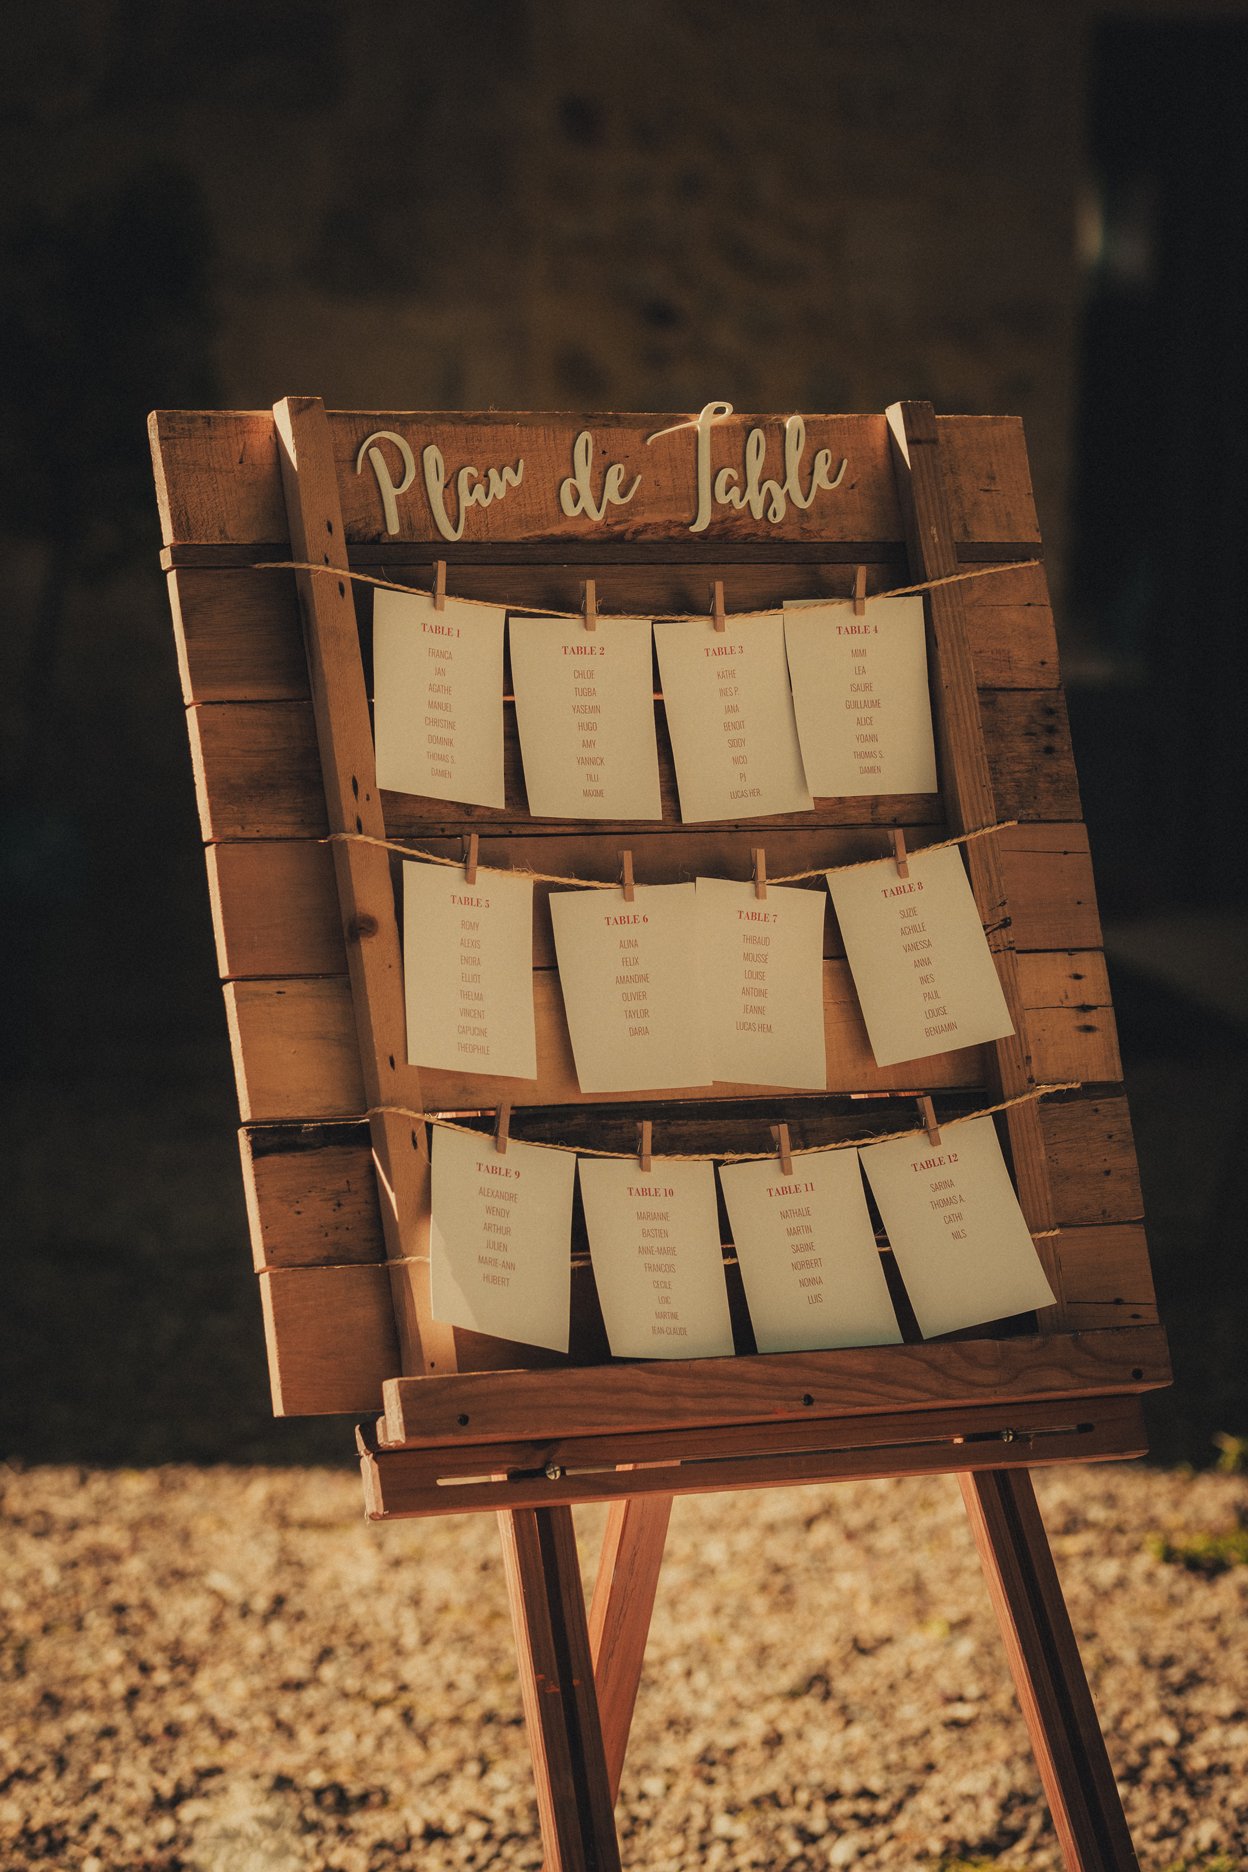 Plan de Table
TABLE 1
FRANCA
JAN
AGATHE
MANUEL
CHRISTINE
DOMINIK
THOMAS S.
DAMIEN
TABLE 2
CHLOE
TUGBA
YASEMIN
HUGO
AMY
YANNICK
TILLI
MAXIME
TABLE 3
KATHE
INES P.
JANA
BENOIT
SIGGY
NICO
PJ
LUCAS HER.
TABLE 4
MIMI
LEA
ISAURE
GUILLAUME
ALICE
YOANN
THOMAS S.
DAMIEN
TABLE 5
ROMY
ALEXIS
ENORA
ELLIOT
THELMA
VINCENT
CAPUCINE
THEOPHILE
TABLE 6
ALINA
FELIX
AMANDINE
OLIVIER
TAYLOR
DARIA
TABLE 7
THIBAUD
MOUSSE
LOUISE
ANTOINE
JEANNE
LUCAS HEM.
TABLE 8
SUZIE
ACHILLE
VANESSA
ANNA
INES
PAUL
LOUISE
BENJAMIN
TABLE 9
ALEXANDRE
WENDY
ARTHUR
JULIEN
MARIE-ANN
HUBERT
TABLE 10
MARIANNE
BASTIEN
ANNE-MARIE
FRANCOIS
CECILE
LOIC
MARTINE
JEAN-CLAUDE
TABLE 11
NATHALIE
MARTIN
SABINE
NORBERT
NONNA
LUIS
TABLE 12
SARINA
THOMAS A.
CATHI
NILS